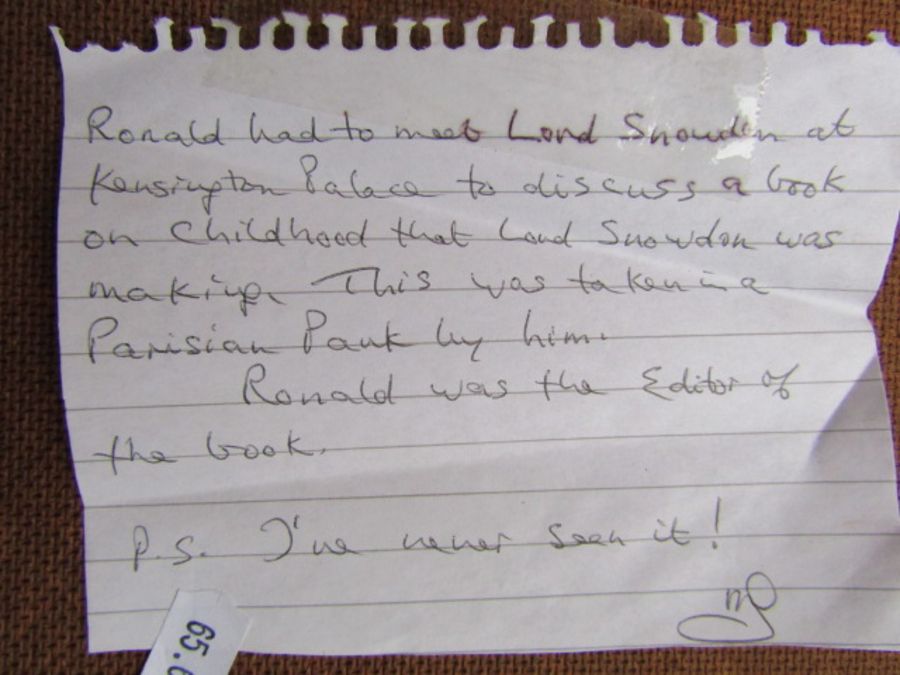 Ronald had to meet Lord Snowdon at
Kensington Palace to discuss a book
on Childhood that Lord Snowdon was
making. This was taken in a
Parisian Park by him.
Ronald was the Editor of
the book.
P.S. I've never seen it!
65.